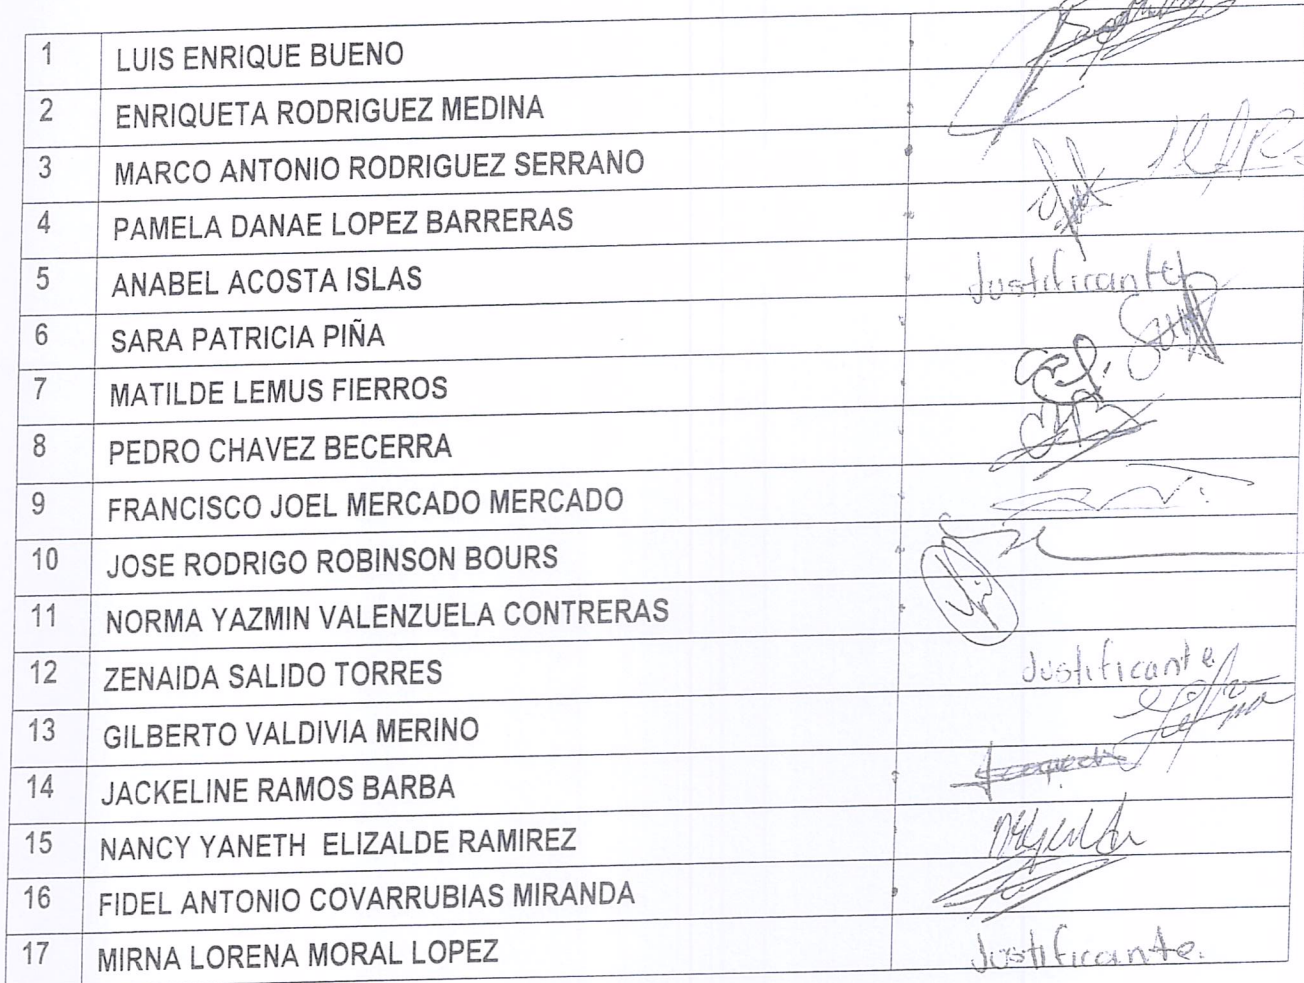 1 LUIS ENRIQUE BUENO
2 ENRIQUETA RODRIGUEZ MEDINA
3 MARCO ANTONIO RODRIGUEZ SERRANO
4 PAMELA DANAE LOPEZ BARRERAS
5 ANABEL ACOSTA ISLAS Justificante
6 SARA PATRICIA PIÑA
7 MATILDE LEMUS FIERROS
8 PEDRO CHAVEZ BECERRA
9 FRANCISCO JOEL MERCADO MERCADO
10 JOSE RODRIGO ROBINSON BOURS
11 NORMA YAZMIN VALENZUELA CONTRERAS
12 ZENAIDA SALIDO TORRES Justificante
13 GILBERTO VALDIVIA MERINO
14 JACKELINE RAMOS BARBA
15 NANCY YANETH ELIZALDE RAMIREZ
16 FIDEL ANTONIO COVARRUBIAS MIRANDA
17 MIRNA LORENA MORAL LOPEZ Justificante.